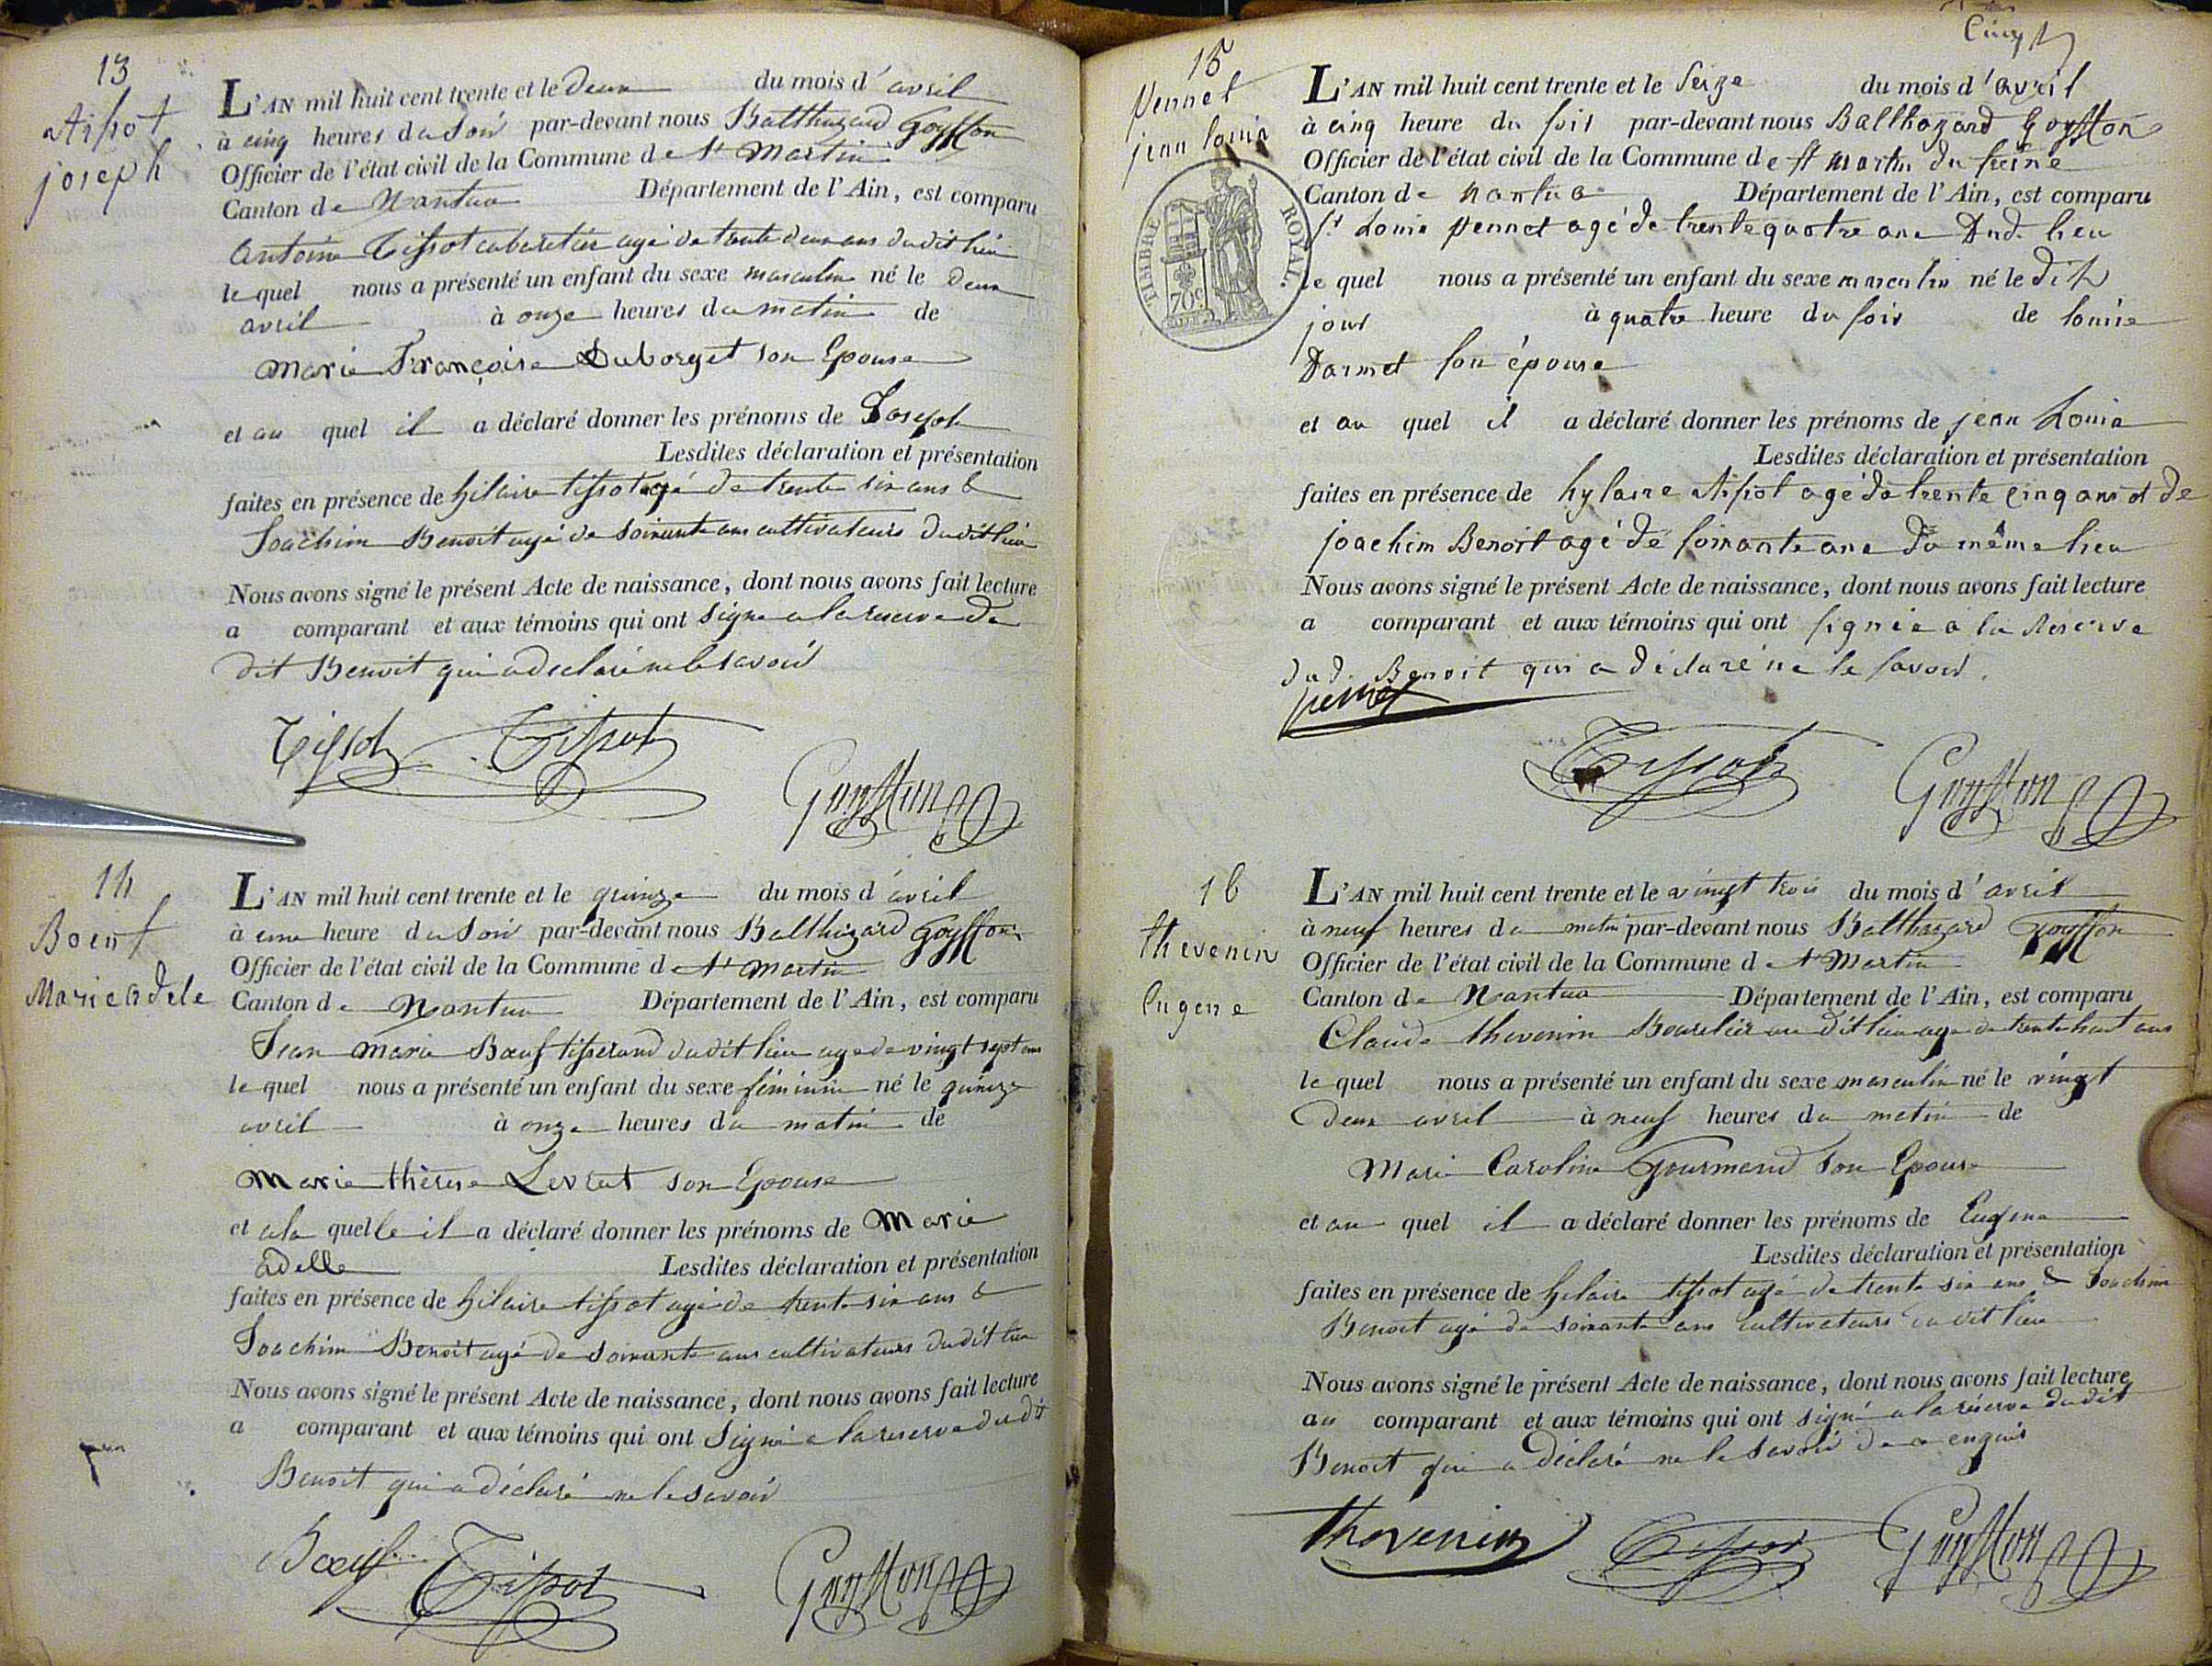 13
Tissot
joseph
L'AN mil huit cent trente et le deux du mois d'avril
à cinq heures du soir par-devant nous Balthazard Goyffon
Officier de l'état civil de la Commune de St Martin
Canton de Nantua Département de l'Ain, est comparu
Antoine Tissot cabaretier agé de trente deux ans dudit lieu
le quel nous a présenté un enfant du sexe masculin né le deux
avril à onze heures du matin de
Marie Françoise Duborget son Epouse
et au quel il a déclaré donner les prénoms de Joseph
Lesdites déclaration et présentation
faites en présence de hilaire tissot agé de trente six ans &
Joachim Benoit agé de soixante ans cultivateurs dudit lieu
Nous avons signé le présent Acte de naissance, dont nous avons fait lecture
a comparant et aux témoins qui ont signé a la reserve du
dit Benoit qui a declaré ne le savoir
Tissot Tissot
Goyffon
14
Marie Adele
L'AN mil huit cent trente et le quinze du mois d'avril
à une heure du soir par-devant nous Balthazard Goyffon
Officier de l'état civil de la Commune de St Martin
Canton de Nantua Département de l'Ain, est comparu
Jean Marie Bœuf tisserand dudit lieu agé de vingt sept ans
le quel nous a présenté un enfant du sexe féminin né le quinze
avril à onze heures du matin de
Marie thérèse Levrat son Epouse
et a la quelle il a déclaré donner les prénoms de Marie
adelle Lesdites déclaration et présentation
faites en présence de hilaire tissot agé de trente six ans &
Joachim Benoit agé de soixante ans cultivateurs dudit lieu
Nous avons signé le présent Acte de naissance, dont nous avons fait lecture
a comparant et aux témoins qui ont signé a la reserve dudit
Benoit qui a déclaré ne le savoir
Bœuf Tissot Goyffon
Cinq
15
pennet
jean louis
TIMBRE ROYAL.
70c
L'AN mil huit cent trente et le seize du mois d'avril
à cinq heure du soir par-devant nous Balthazard Goyffon
Officier de l'état civil de la Commune de st martin du freine
Canton de nantua Département de l'Ain, est comparu
sr Louis pennet agé de trente quatre ans dud. lieu
le quel nous a présenté un enfant du sexe masculin né le dit
jour à quatre heure du soir de louise
Darmet son épouse
et au quel il a déclaré donner les prénoms de jean Louis
Lesdites déclaration et présentation
faites en présence de hylaire tissot agé de trente cinq ans et de
joachim Benoit agé de soixante ans du même lieu
Nous avons signé le présent Acte de naissance, dont nous avons fait lecture
a comparant et aux témoins qui ont signée a la Reserve
dud. Benoit qui a déclaré ne le savoir.
pennet
Tissot Goyffon
16
thevenin
Eugene
L'AN mil huit cent trente et le vingt trois du mois d'avril
à neuf heures du matin par-devant nous Balthazard Goyffon
Officier de l'état civil de la Commune de St Martin
Canton de Nantua Département de l'Ain, est comparu
Claude thevenin Bourelier au dit lieu agé de trente huit ans
le quel nous a présenté un enfant du sexe masculin né le vingt
deux avril à neuf heures du matin de
Marie Caroline Gourmend son Epouse
et au quel il a déclaré donner les prénoms de Eugene
Lesdites déclaration et présentation
faites en présence de hilaire tissot agé de trente six ans & Joachim
Benoit agé de soixante ans cultivateurs dudit lieu
Nous avons signé le présent Acte de naissance, dont nous avons fait lecture
au comparant et aux témoins qui ont signé a la réserve dudit
Benoit qui a déclaré ne le savoir de ce enquis
Thevenin Tissot Goyffon